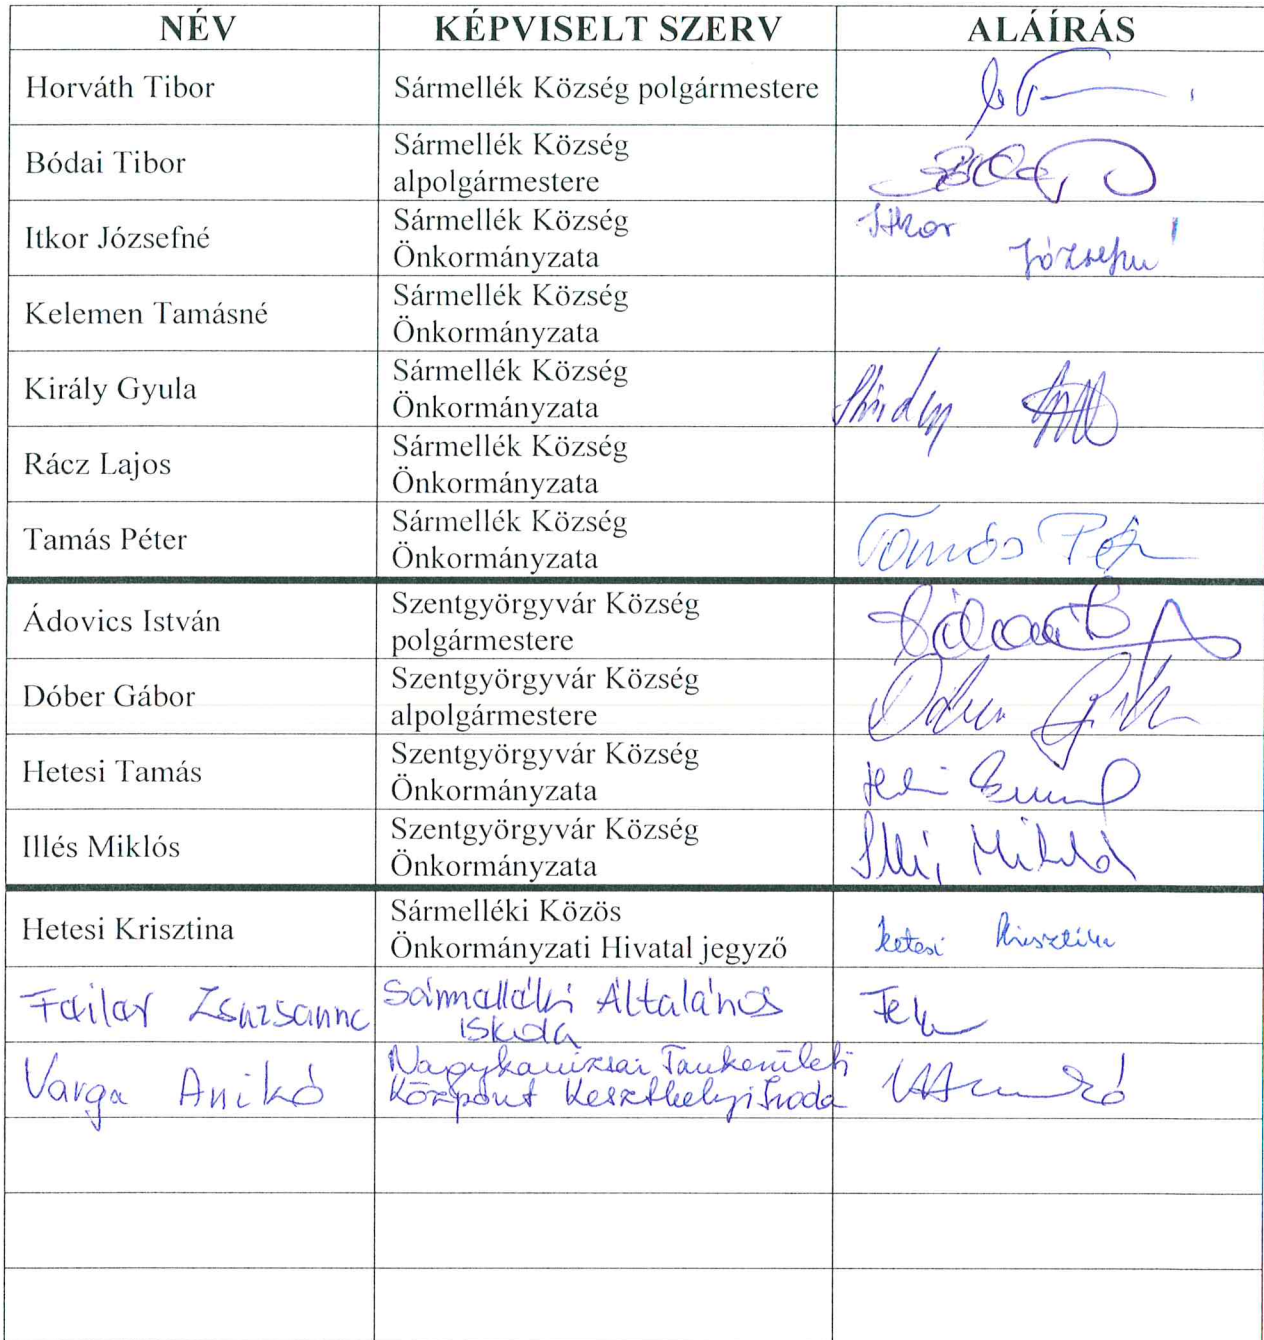 NÉV KÉPVISELT SZERV ALÁÍRÁS
Horváth Tibor Sármellék Község polgármestere
Bódai Tibor Sármellék Község
alpolgármestere
Itkor Józsefné Sármellék Község Itkor
Önkormányzata Józsefné
Kelemen Tamásné Sármellék Község
Önkormányzata
Király Gyula Sármellék Község
Önkormányzata
Rácz Lajos Sármellék Község
Önkormányzata
Tamás Péter Sármellék Község
Önkormányzata Tamás Péter
Ádovics István Szentgyörgyvár Község
polgármestere
Dóber Gábor Szentgyörgyvár Község
alpolgármestere
Hetesi Tamás Szentgyörgyvár Község
Önkormányzata
Illés Miklós Szentgyörgyvár Község
Önkormányzata Illés Miklós
Hetesi Krisztina Sármelléki Közös
Önkormányzati Hivatal jegyző Hetesi Krisztina
Zsuzsanna Sármelléki Általános
Iskola
Varga Anikó Nagykanizsai Tankerületi
Központ Keszthelyi Iroda